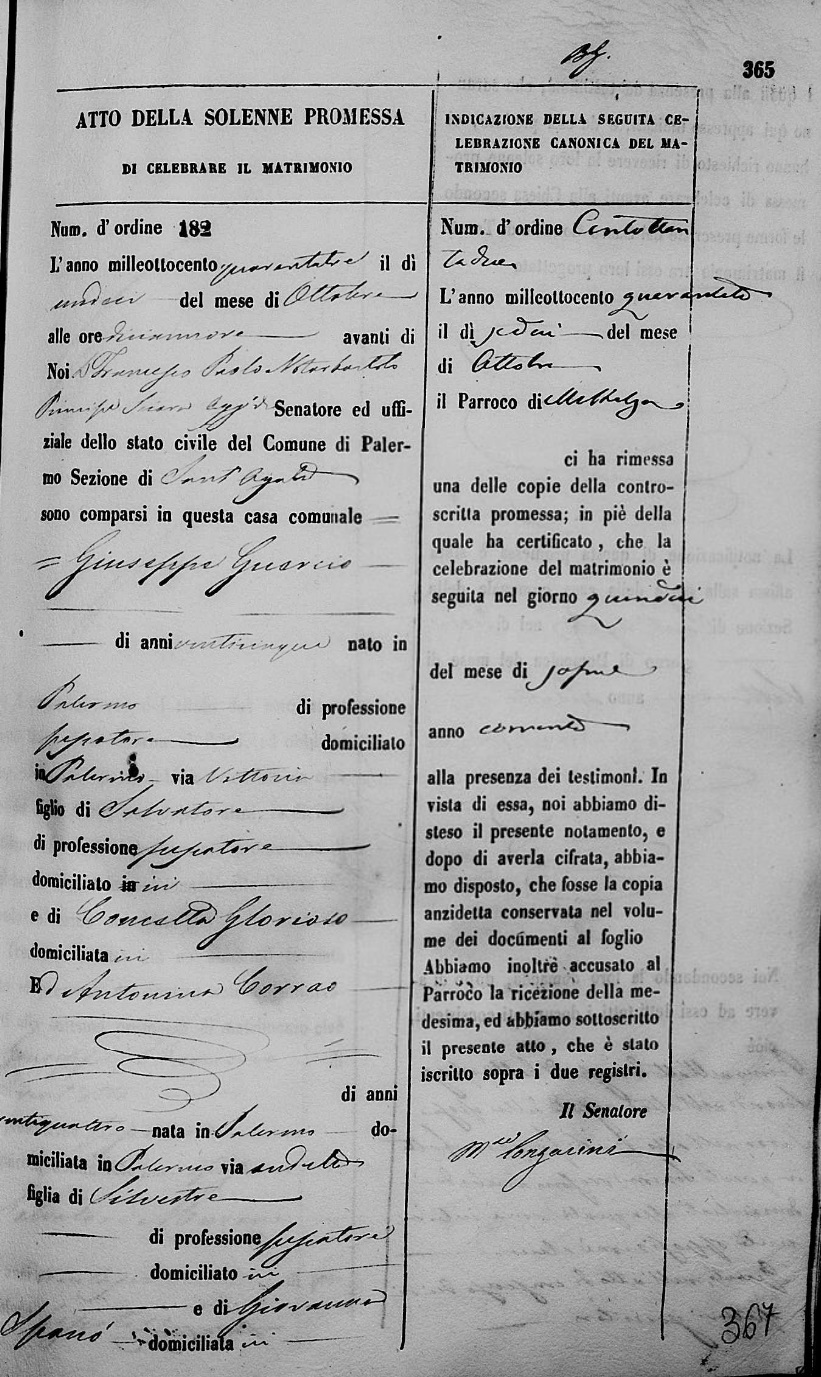 365
ATTO DELLA SOLENNE PROMESSA
DI CELEBRARE IL MATRIMONIO
Num. d'ordine 182
L'anno milleottocento quarantatre il dì
undeci del mese di Ottobre
alle ore diciannove avanti di
Noi D. Francesco Paolo Notarbartolo
Principe Sciara Senatore ed uffi-
ziale dello stato civile del Comune di Paler-
mo Sezione di Sant'Agata
sono comparsi in questa casa comunale
Giuseppe Guercio
di anni venticinque nato in
Palermo di professione
domiciliato
in Palermo via Vettoria
figlio di Salvatore
di professione
domiciliato in ivi
e di Concetta Glorioso
domiciliata ivi
Ed Antonina Corrao
di anni
ventiquattro nata in Palermo do-
miciliata in Palermo via
figlia di Silvestre
di professione
domiciliato ivi
e di Giovanna
Spanò domiciliata ivi
INDICAZIONE DELLA SEGUITA CE-
LEBRAZIONE CANONICA DEL MA-
TRIMONIO
Num. d'ordine Centottan
tadue
L'anno milleottocento quarantatre
il dì sedici del mese
di Ottobre
il Parroco di
ci ha rimessa
una delle copie della contro-
scritta promessa; in piè della
quale ha certificato, che la
celebrazione del matrimonio è
seguita nel giorno quindici
del mese di
anno corrente
alla presenza dei testimoni. In
vista di essa, noi abbiamo di-
steso il presente notamento, e
dopo di averla cifrata, abbia-
mo disposto, che fosse la copia
anzidetta conservata nel volu-
me dei documenti al foglio
Abbiamo inoltre accusato al
Parroco la ricezione della me-
desima, ed abbiamo sottoscritto
il presente atto, che è stato
iscritto sopra i due registri.
Il Senatore
367